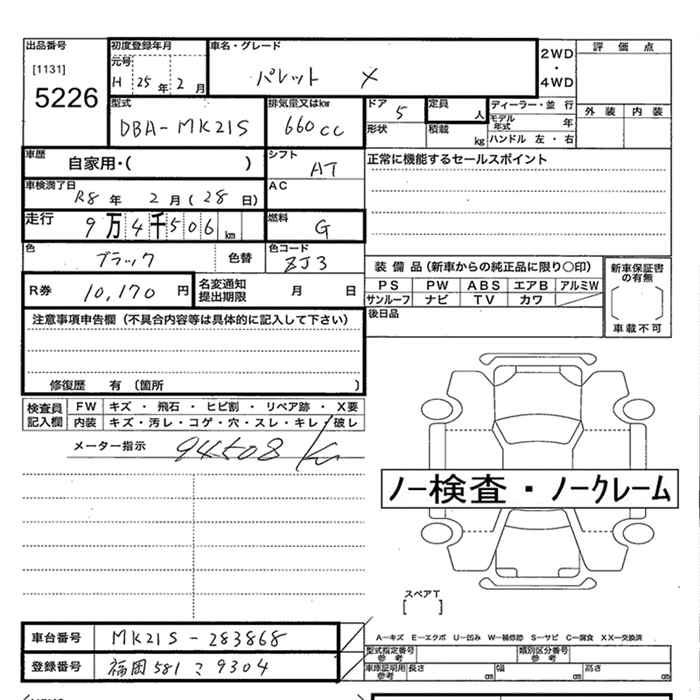 出品番号 初度登録年月 車名・グレード 2WD・4WD 評価点
[1131] 元号
5226 H 25年 2月 パレット X
型式 排気量又はkw ドア 定員 ディーラー・並行 外装 内装
DBA-MK21S 660cc 5 人 モデル年式 年
形状 積載 kg ハンドル 左・右
車歴 自家用・( ) シフト AT 正常に機能するセールスポイント
車検満了日 R8年 2月(28日) AC
走行 9万4千506km 燃料 G
色 ブラック 色替 色コード ZJ3
装備品(新車からの純正品に限り○印) 新車保証書の有無
R券 10,170円 名変通知提出期限 月 日 PS PW ABS エアB アルミW
サンルーフ ナビ TV カワ
後日品 車載不可
注意事項申告欄(不具合内容等は具体的に記入して下さい)
修復歴 有〔箇所 〕
検査員記入欄 FW キズ・飛石・ヒビ割・リペア跡・X要
内装 キズ・汚レ・コゲ・穴・スレ・キレ・破レ
メーター指示 94508 km
ノー検査・ノークレーム
スペアT
[ ]
車台番号 MK21S-283868 A-キズ E-エクボ U-凹み W-補修跡 S-サビ C-腐食 XX-交換済
型式指定番号 参考 類別区分番号 参考
登録番号 福岡581 こ 9304 車庫証明用 参考 長さ cm 幅 cm 高さ cm